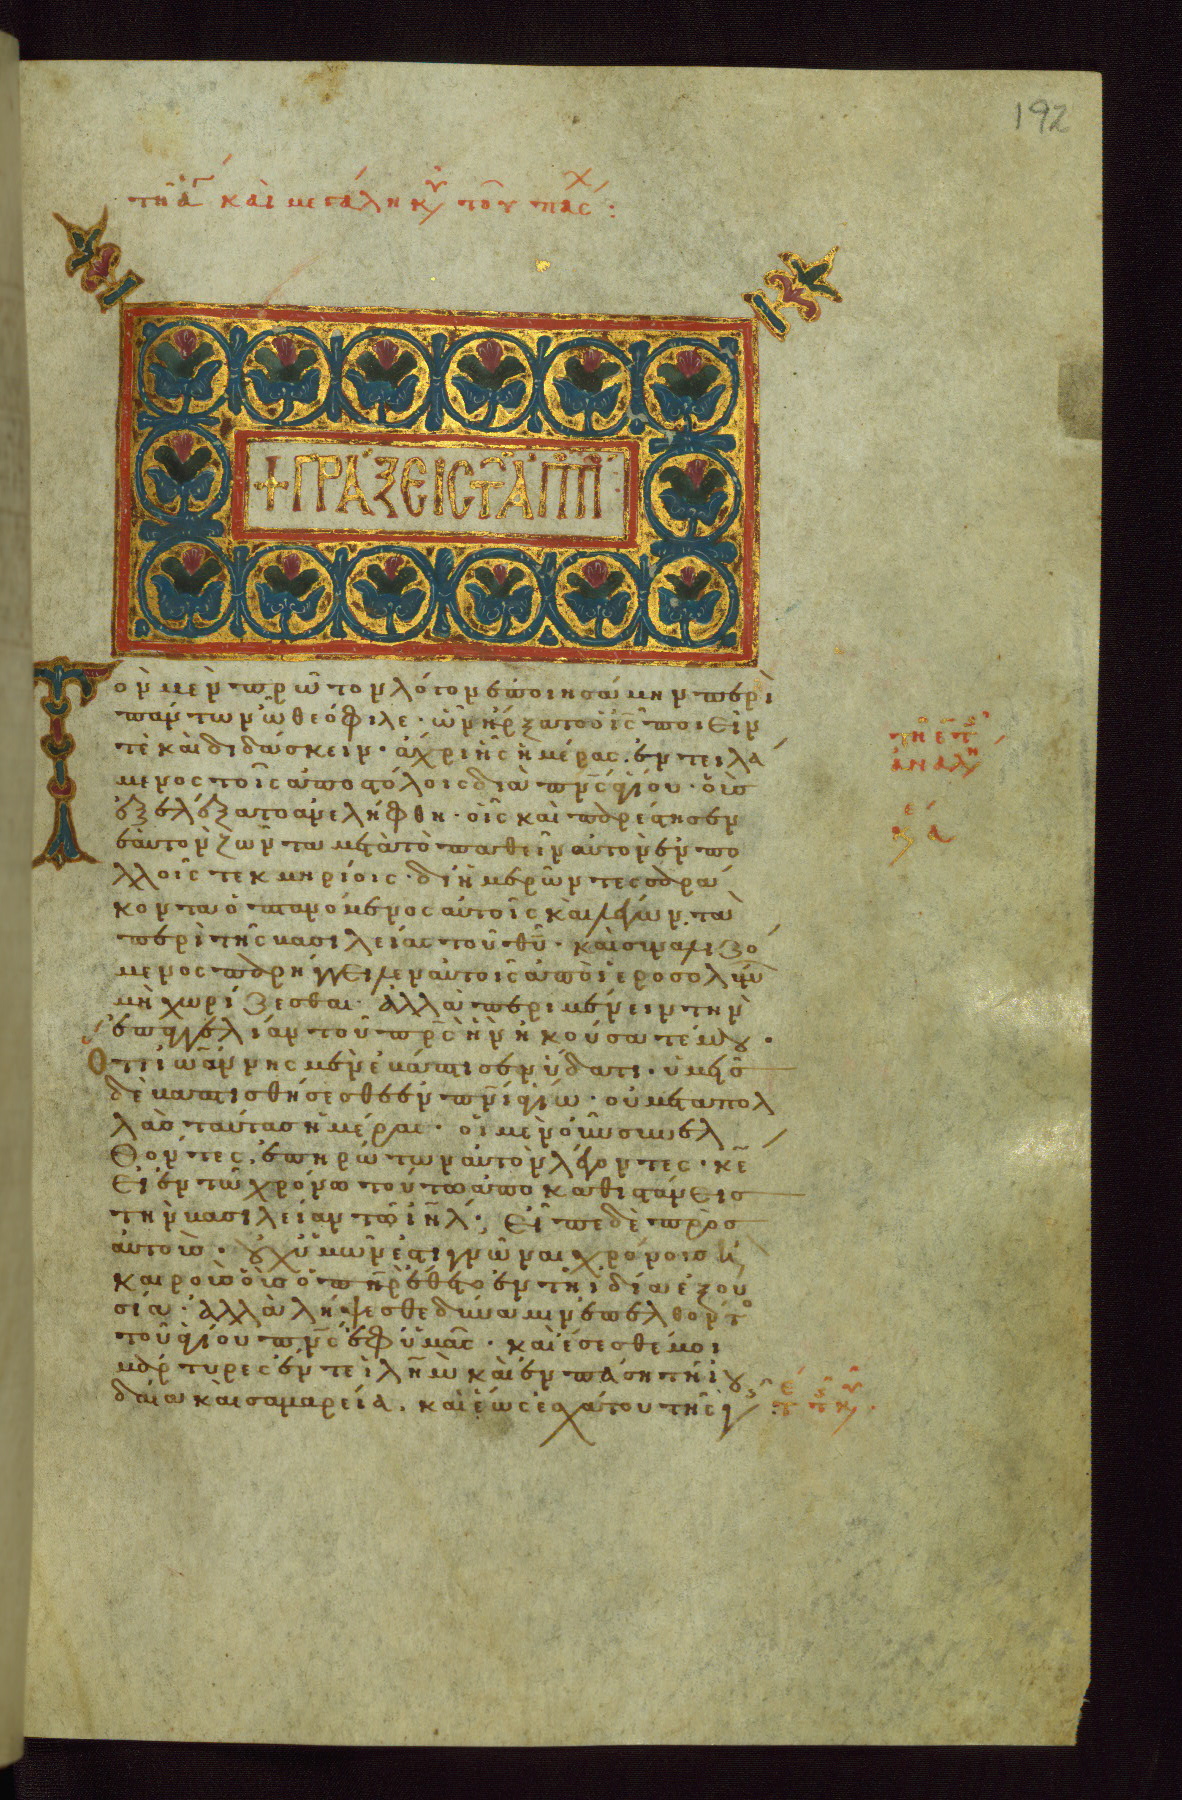 192
τῇ ἁ κ(αὶ) μεγάλη κυ τοῦ πάσχ :
+ ΠΡΑΞΕΙС Τ ΑΠΠ
Τὸν μὲν πρῶτον λόγον ἐποιησάμην περὶ
πάντων ὦ θεόφιλε · ὧν ἤρξατο ὁ ις ποιεῖν
τὲ καὶ διδάσκειν · ἄχρι ἧς ἡμέρας ἐντειλά
μενος τοῖς ἀποστόλοις διὰ πνς ἁγίου · οὓς
ἐξελέξατο ἀνελήφθη · οἷς καὶ παρέστησεν
ἑαυτὸν ζῶντα μετὰ τὸ παθεῖν αὐτὸν ἐν πο
λλοῖς τεκμηρίοις · δι ἡμερῶν τεσσαρά
κοντα ὀπτανόμενος αὐτοῖς καὶ λέγων τὰ
περὶ τῆς βασιλείας τοῦ θυ · καὶ συναλιζό
μενος παρήγγειλεν αὐτοῖς ἀπὸ ἱεροσολύμ
μὴ χωρίζεσθαι · ἀλλὰ περιμένειν τὴν
ἐπαγγελίαν τοῦ πρς ἣν ἠκούσατέ μου ·
Ὅτι ἰωάννης μὲν ἐβάπτισεν ὕδατι · ὑμεῖς
δὲ βαπτισθήσεσθε ἐν πνι ἁγίω · οὐ μετὰ πολ
λὰς ταύτας ἡμέρας · οἱ μὲν οὖν συνελ
θόντες, ἐπηρώτων αὐτὸν λέγοντες · κε
εἰ ἐν τῶ χρόνω τούτω ἀποκαθιστάνεις
τὴν βασιλείαν τῶ ιηλ ; Εἶπε δὲ πρὸς
αὐτοὺς · οὐχ ὑμῶν ἐστι γνῶναι χρόνους ἢ
καιροὺς οὓς ὁ πηρ ἔθετο ἐν τῆ ἰδία ἐξου
σία · ἀλλὰ λήψεσθε δύναμιν ἐπελθόντο
τοῦ ἁγίου πνς ἐφ ὑμᾶς · καὶ ἔσεσθέ μοι
μάρτυρες ἔν τε ιλημ καὶ ἐν πάση τῆ ἰου
δαία καὶ σαμαρεία, καὶ ἕως ἐσχάτου τῆς γ
τῇ ε τ
ἀναλη